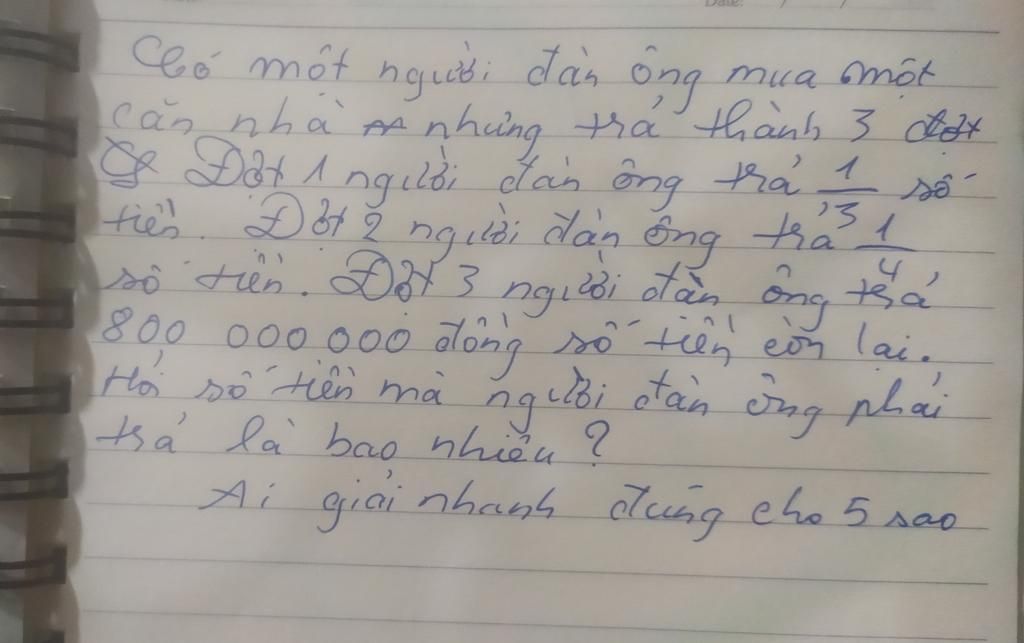 Date: / /
Có một người đàn ông mua một
căn nhà nhưng trả thành 3 đợt
Đợt 1 người đàn ông trả 1/3 số
tiền. Đợt 2 người đàn ông trả 1/4
số tiền. Đợt 3 người đàn ông trả
800 000 000 đồng số tiền còn lại.
Hỏi số tiền mà người đàn ông phải
trả là bao nhiêu?
Ai giải nhanh đúng cho 5 sao